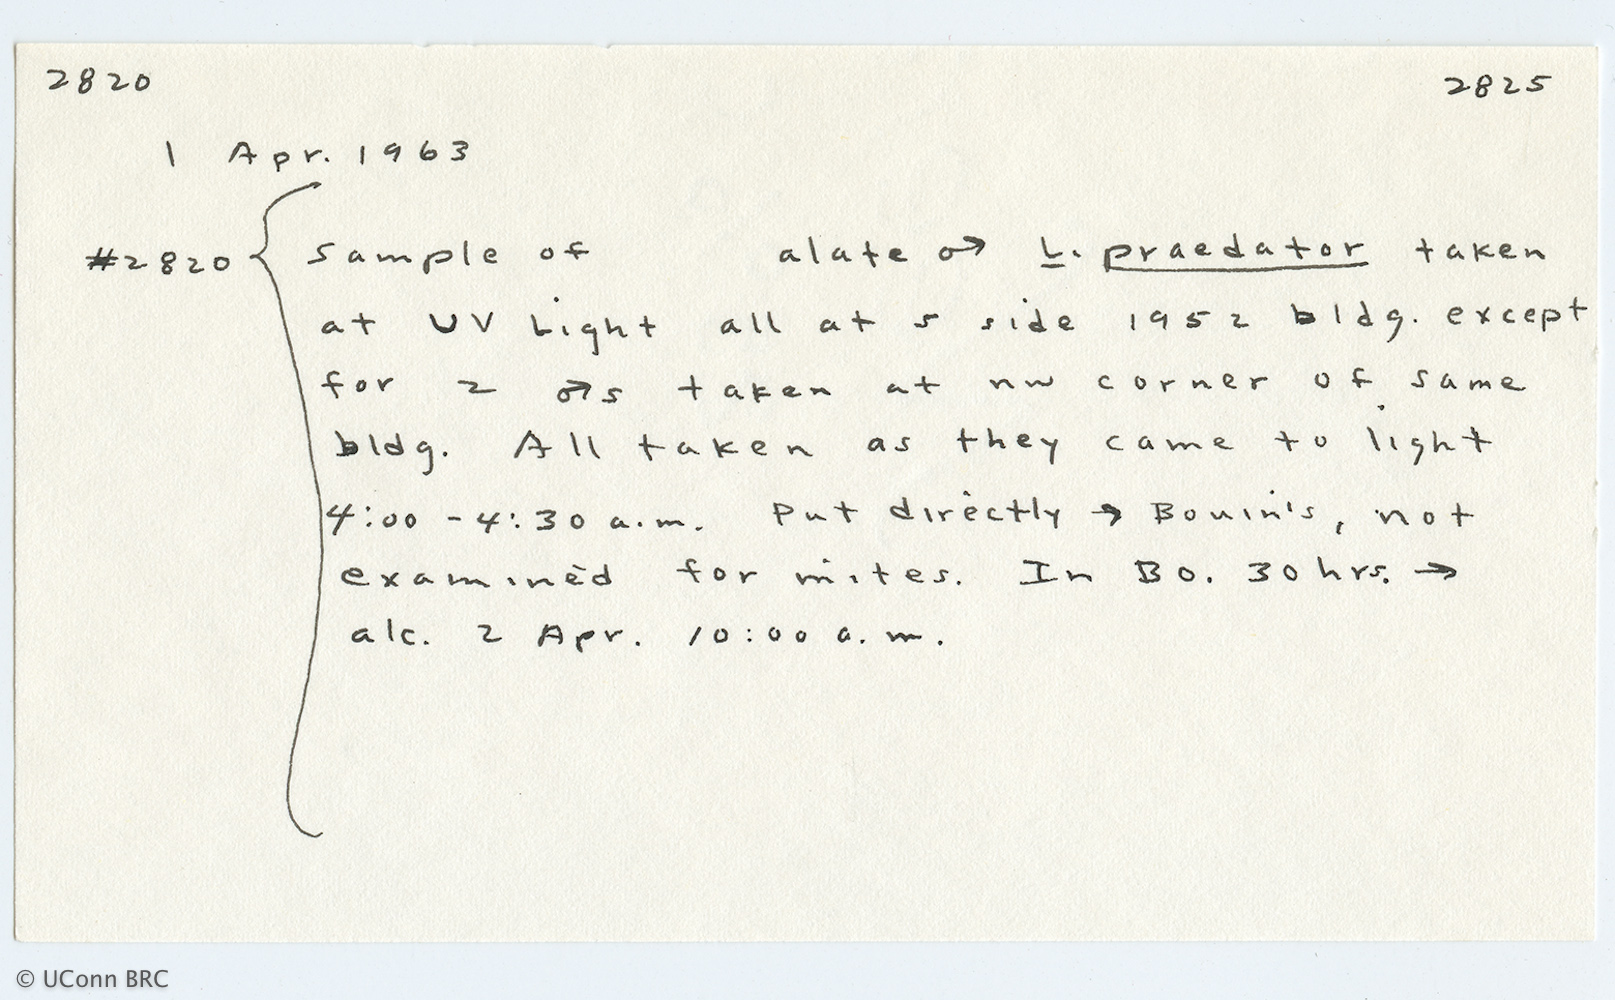 2820 2825
1 Apr. 1963
#2820 { Sample of alate ♂ L. praedator taken
at UV Light all at s side 1952 bldg. except
for 2 ♂s taken at nw corner of same
bldg. All taken as they came to light
4:00 - 4:30 a.m. Put directly → Bouin's, not
examined for mites. In Bo. 30 hrs. →
alc. 2 Apr. 10:00 a.m.
© UConn BRC